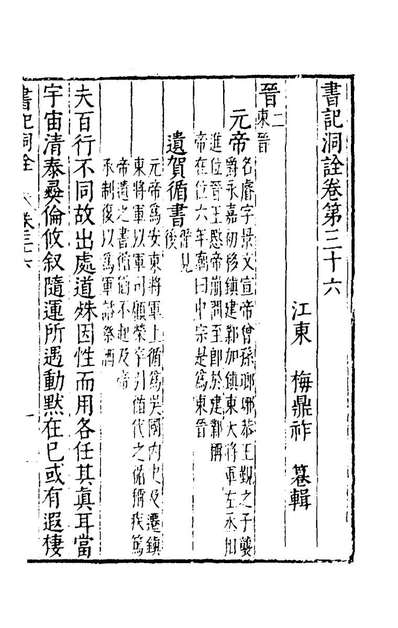 書記洞詮卷第三十六
江東 梅鼎祚 纂輯
晉二
東晉
元帝
名睿字景文宣帝曾孫瑯琊恭王覲之子襲
爵永嘉初移鎮建鄴加鎮東大將軍左丞相
進位晉王愍帝崩問至即於建鄴稱
帝在位六年廟曰中宗是爲東晉
遺賀循書
啓見後
元帝爲安東將軍上循爲吳國内史及遷鎮
東將軍以軍司顧榮卒引循代之循稱疾篤
帝遺之書循猶不起及帝
承制復以爲軍諮祭酒
夫百行不同故出處道殊因性而用各任其眞耳當
宇宙清泰彞倫攸叙隨運所遇動默在已或有遐棲
書記洞詮
卷三十六
一